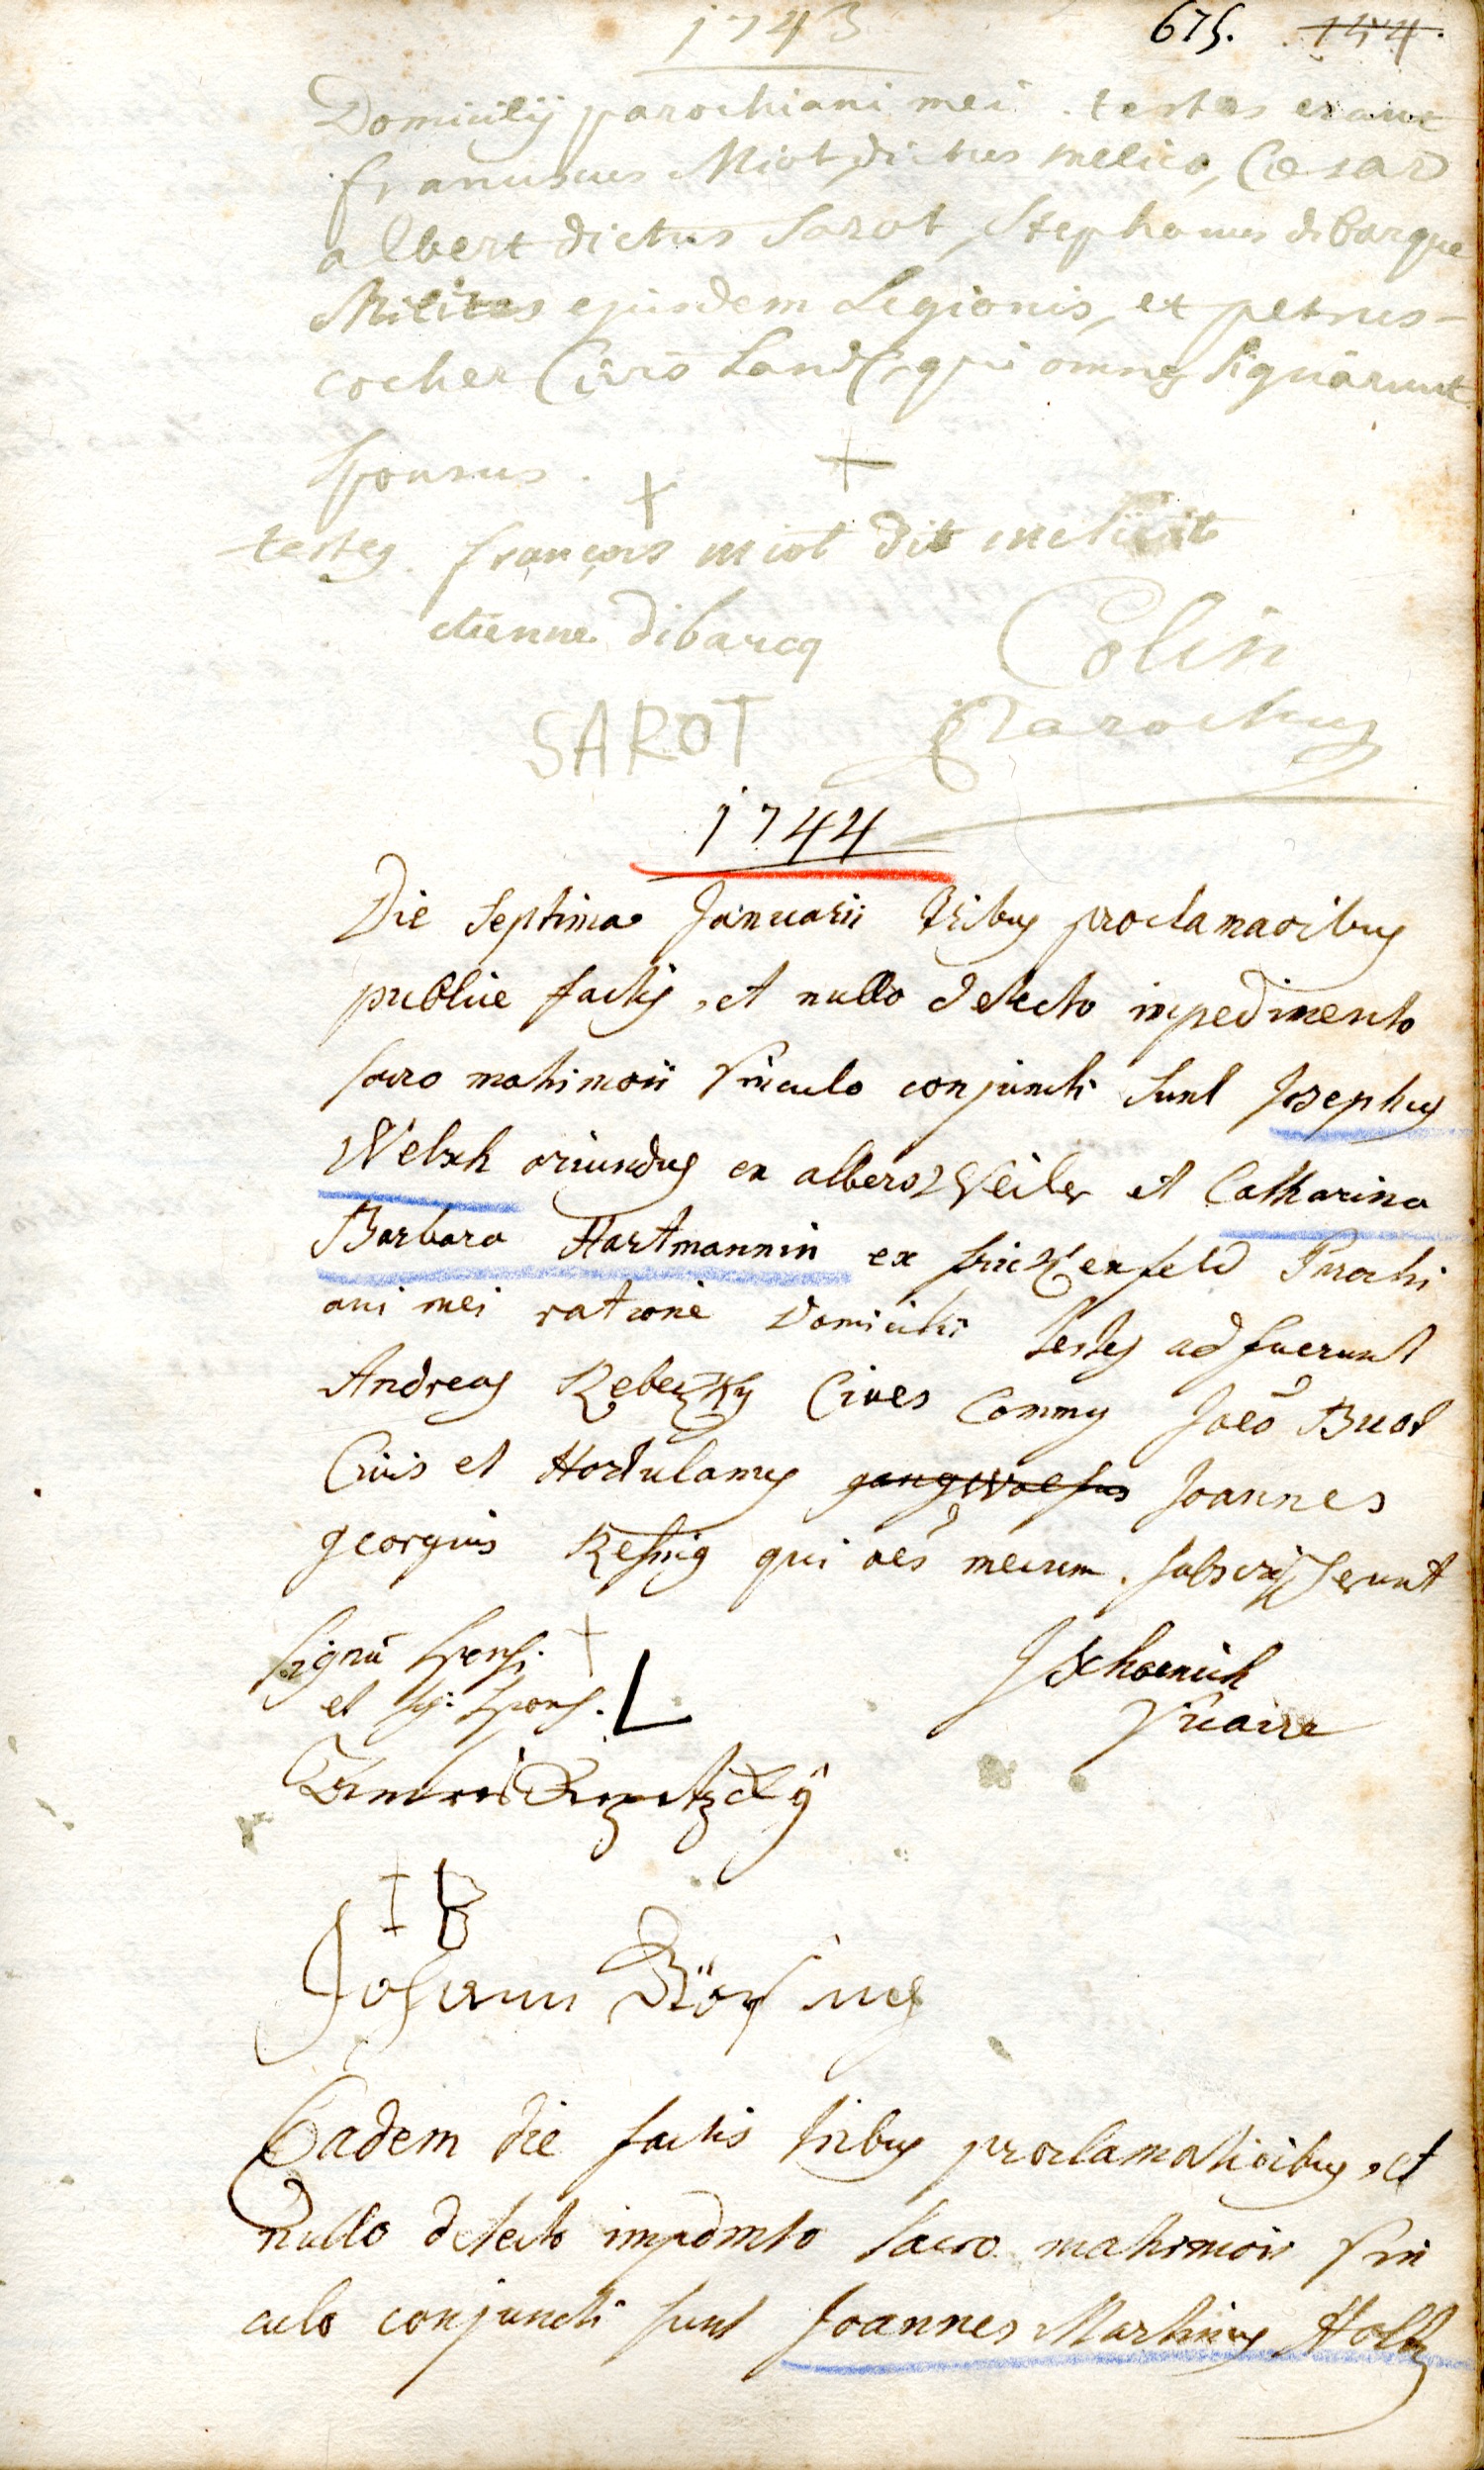 1743
675. 144.
Domicilÿ parochiani mei. testes erant
franciscus Miot dictus melico, Cæsar
albert dictus Sarot, Stephanus dibarque
Milites ejusdem Legionis, et petrus
cocher Civis Land, qui omnes signarunt
sponsus. + +
testes françois miot dit
etienne dibarcq Colin
SAROT Parochus
1744
Die Septima Januarii tribus proclamaoibus
publice factis, et nullo detecto impedimento
sacro matrimoii vinculo conjuncti sunt Josephus
Welsch oriundus ex albersweiler et Catharina
Barbara Hartmannin ex frickenfeld Parochi
ani mei ratione Domicilii testes adfuerunt
Andreas Rebetzky Cives Commus Joēs Buot
Civis et Hortulanus Joannes
georgius Resnig qui oēs mecum subscripserunt
signū sponsi. + J Schoenich
et sig: spons. L Vicaire
IB
Johann
Eadem die factis tribus proclamatioibus, et
nullo detecto impdmto sacro matrimoii vin
culo conjuncti sunt Joannes Martinus Holtz